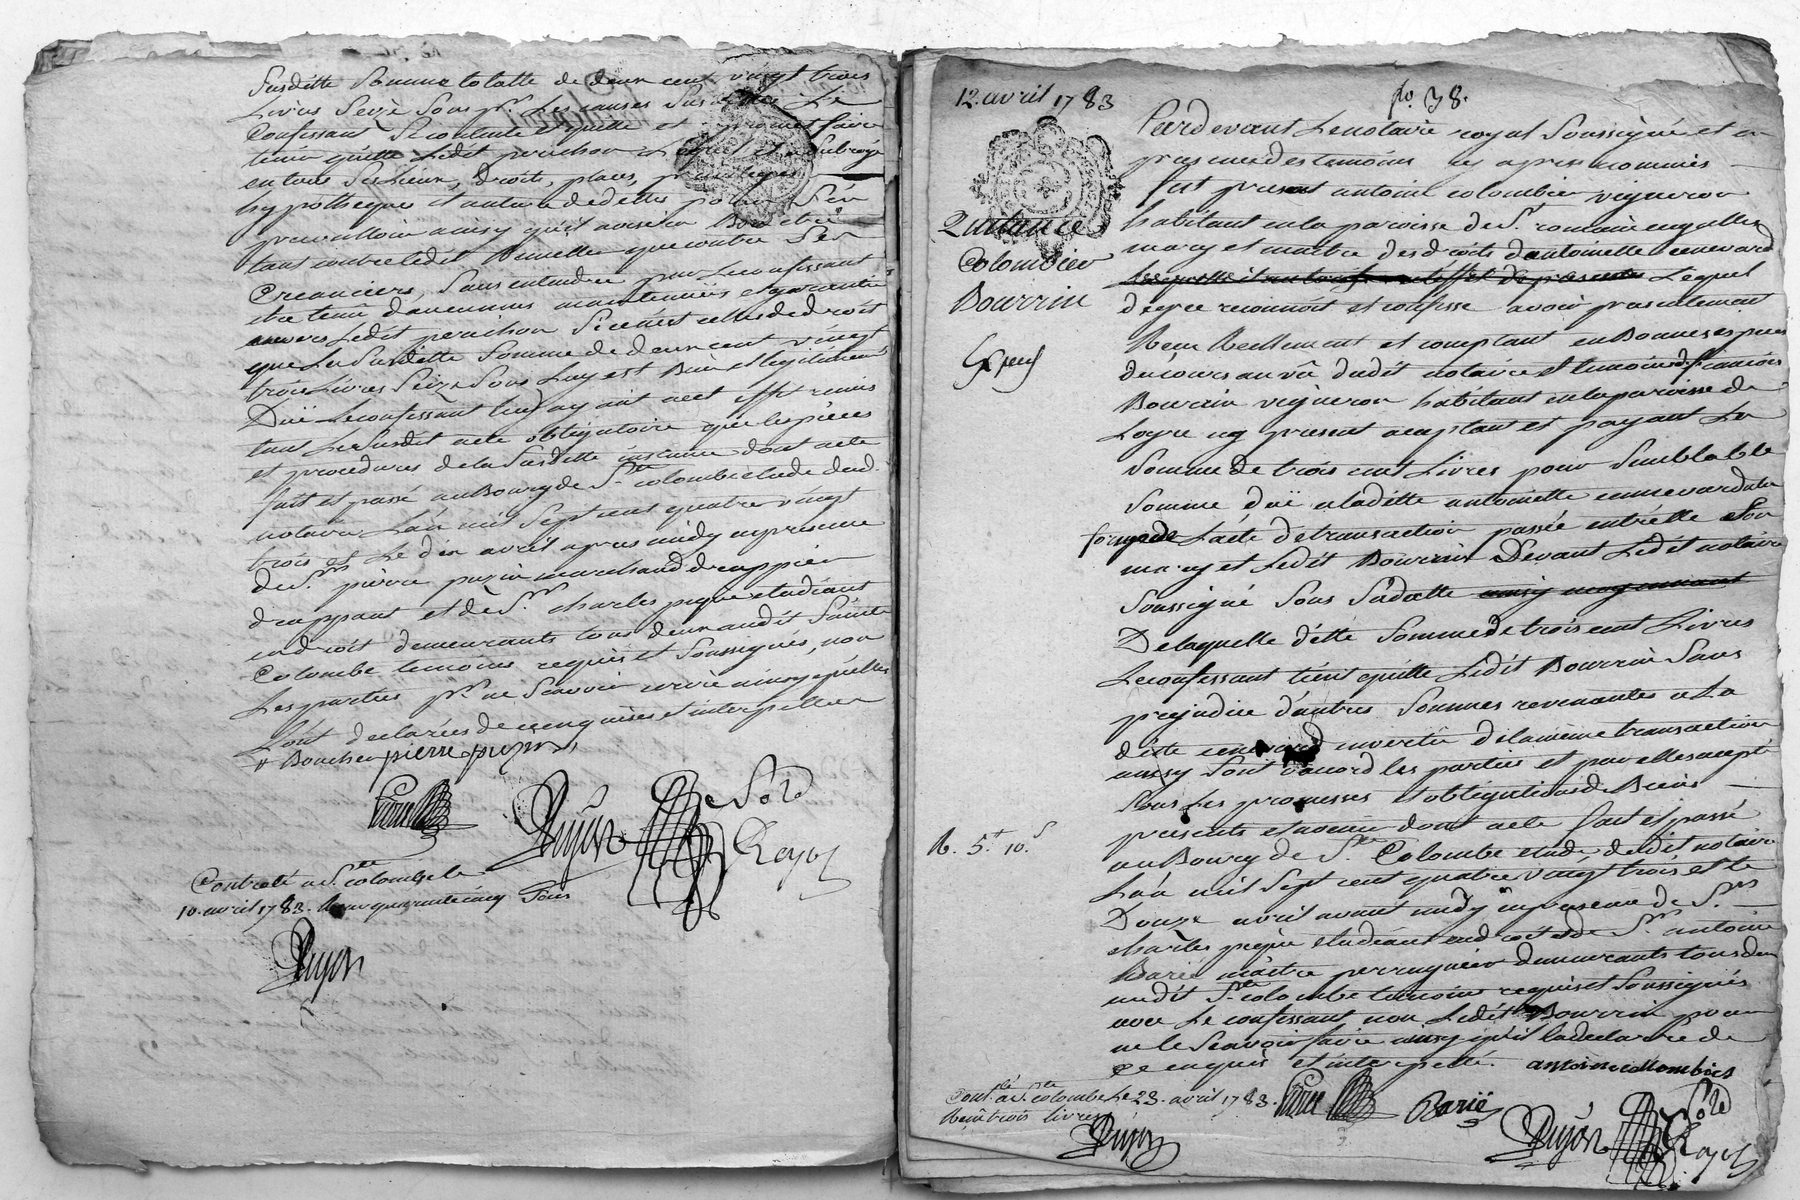 Susditte Somme totalle de deux cent vingt trois
Livres Seize Sous pr. Les causes Sus Le
Confessant Se contente et quitte et promet faire
tenir quitte Ledit perichon Lequel Subrogé
en tous Ses Lieux, Droits, places, privileges
hypotheques et nature de dettes pour S'en
prevalloir ainsy qu'il avisera Bon être
tant contre ledit que contre Ses
Creanciers, Sans entendre par Le confessant
être tenu d'aucunnes maintenües et garantie
envers Ledit perichon Si ce n'est celle de droit
que La Susditte Somme de deux cent vingt
trois Livres Seize Sous Luy est Bien et legitimement
Düe Le confessant luy ayant a cet effet remis
tant Le Susdit acte obligatoire que les pièces
et procedures de la Susditte instance dont acte
fait et passé au Bourg de Ste. colombe etude dud.
notaire L'an mil Sept cent quatre vingt
trois et Le dix avril apres midy en presence
de Sr. pierre puzin marchand drappier
drappant et de Sr. charles pegne etudiant
en droit demeurants tous deux audit Sainte
Colombe temoins requis et Soussignés, non
Les parties pr. ne Scavoir ecrire ainsy qu'elles
L'ont declarées de ce enquises et interpellées
Boucher pierre puzin
Dujon
Sold
Royol
Controlé a Ste. colombe le
10. avril 1783. Reçu quarante cinq Sous
Dujon
12. avril 1783
fo. 38.
Quittance
Colombier
Bourrin
Exped
Pardevant Le notaire royal Soussigné et en
presence des temoins cy apres nommés
fut present antoine colombier vigneron
habitant en la paroisse de St. romain en galles
mary et maitre des droits d'antoinette cenevard
Lequel
de gré reconnoit et confesse avoir presentement
Reçu Reellement et comptant en Bonnes especes
de cours au vû dudit notaire et temoins de francois
Bourrin vigneron habitant en la paroisse de
Loyre cy present acceptant et payant La
Somme de trois cent Livres pour Semblable
Somme düe a laditte antoinette cennevard en
forme de L'acte de transaction passée entr'elle Son
mary et Ledit Bourrin Devant Ledit notaire
Soussigné Sous Sa datte
De laquelle ditte Somme de trois cent Livres
Le confessant tient quitte Ledit Bourrin Sans
prejudice d'autres Sommes revenantes a La
ditte cenevard en vertu de la même transaction
ainsy Sont d'accord les parties et par elles accepté
Sous Les promesses et obligations de Biens
presents et avenir dont acte fait et passé
au Bourg de Ste. Colombe etude dedit notaire
L'an mil Sept cent quatre vingt trois et le
Douze avril avant midy en presence de Srs.
charles pegne etudiant en droit et de Sr. antoine
Barié maitre perruquier demeurants tous deux
audit Ste. colombe temoins requis et Soussignés
avec Le confessant non Ledit Bourrin pour
ne le Scavoir faire ainsy qu'il la declare de
ce enquis et interpellé. antoine collombier
R. 5. 10. s
Contlé. a Ste. colombe Le 23. avril 1783.
Reçu trois livres
Barié
Dujon
Dujon
Sold
Royol